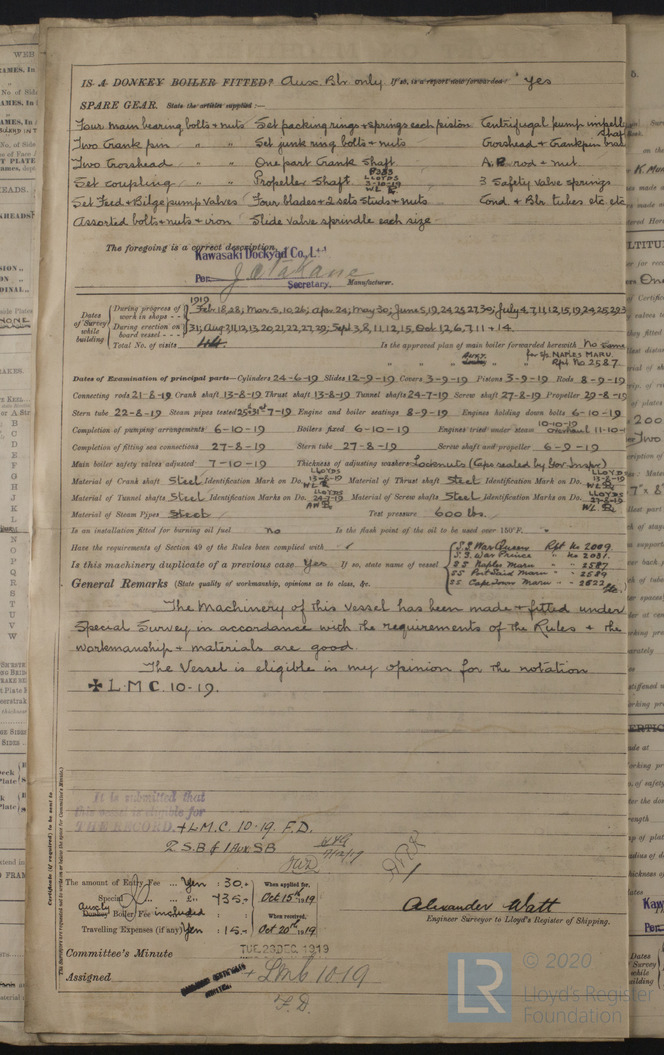 IS A DONKEY BOILER FITTED? Aux. Blr only If so, is a report now forwarded? Yes
SPARE GEAR. State the articles supplied:—
Four main bearing bolts & nuts Set packing rings & springs each piston Centrifugal pump impeller shaft
Two Crank pin " " Set junk ring bolts & nuts Crosshead & Crankpin
Two Crosshead " " One part Crank Shaft A.P. rod & nut
Set coupling " " Propeller Shaft LLOYDS 3-10-19 3 Safety valve springs
Set Feed & Bilge pump valves Four blades & 2 sets studs & nuts Cond & Blr tubes etc. etc
Assorted bolts & nuts & iron Slide valve spindle each size
The foregoing is a correct description,
Kawasaki Dockyard Co., Ltd.
Per Secretary. Manufacturer.
1919
Dates of Survey while building
During progress of work in shops - - Feb 18, 28; Mar. 5, 10, 26; Apr. 24; May 30; June 5, 19, 24, 25, 27, 30; July 4, 7, 11, 12, 15, 19, 24, 25, 29, 3
During erection on board vessel - - - 31; Aug 7, 11, 12, 13, 20, 21, 22, 27, 29; Sept 3, 8, 11, 12, 15, Oct. 1, 2, 6, 7, 11 & 14.
Total No. of visits 44 Is the approved plan of main boiler forwarded herewith No same
" " Auxy. " " for S/S NAPLES MARU. Rpt No 2587.
Dates of Examination of principal parts—Cylinders 24-6-19 Slides 12-9-19 Covers 3-9-19 Pistons 3-9-19 Rods 8-9-19
Connecting rods 21-8-19 Crank shaft 13-8-19 Thrust shaft 13-8-19 Tunnel shafts 24-7-19 Screw shaft 27-8-19 Propeller 29-8-19
Stern tube 22-8-19 Steam pipes tested 25 & 31st 7-19 Engine and boiler seatings 8-9-19 Engines holding down bolts 6-10-19
Completion of pumping arrangements 6-10-19 Boilers fixed 6-10-19 Engines tried under steam 10-10-19 11-10-1
Completion of fitting sea connections 27-8-19 Stern tube 27-8-19 Screw shaft and propeller 6-9-19
Main boiler safety valves adjusted 7-10-19 Thickness of adjusting washers Locknuts (Caps sealed by Gov. Inspr)
Material of Crank shaft Steel Identification Mark on Do. LLOYDS 13-8-19 Material of Thrust shaft Steel Identification Mark on Do. LLOYDS 13-8-19
Material of Tunnel shafts Steel Identification Marks on Do. LLOYDS 24-7-19 Material of Screw shafts Steel Identification Marks on Do. LLOYDS 27-8-19
Material of Steam Pipes Steel Test pressure 600 lbs.
Is an installation fitted for burning oil fuel no Is the flash point of the oil to be used over 150°F.
Have the requirements of Section 49 of the Rules been complied with
Is this machinery duplicate of a previous case Yes If so, state name of vessel
S.S. War Queen Rpt No 2009
S.S. War Prince " No 2031.
SS Naples Maru - " 2587
SS Port Said Maru - " 2589
SS Cape Town Maru - " 2622 etc.
General Remarks (State quality of workmanship, opinions as to class, &c.
The Machinery of this vessel has been made & fitted under
Special Survey in accordance with the requirements of the Rules & the
workmanship & materials are good.
The Vessel is eligible in my opinion for the notation
✠ L.M.C. 10-19.
It is submitted that
this vessel is eligible for
THE RECORD. + L.M.C. 10.19. F.D.
2 S.B & 1 Aux SB
Certificate (if required) to be sent to
The Surveyors are requested not to write on or below the space for Committee's Minute.
The amount of Entry Fee ... Yen : 30.-
Special ... £.. 735.-
Auxly Donkey Boiler Fee included
Travelling Expenses (if any) Yen : 15.-
When applied for, Oct 15th 1919
When received, Oct 20th 1919
Alexander Watt
Engineer Surveyor to Lloyd's Register of Shipping.
Committee's Minute TUE. 23 DEC. 1919
Assigned + LMC 10.19
F.D.
LR © 2020
Lloyd's Register
Foundation